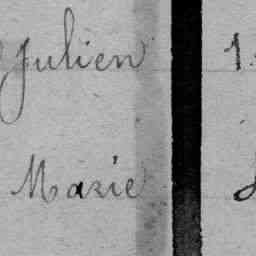 Julien 1
Marie